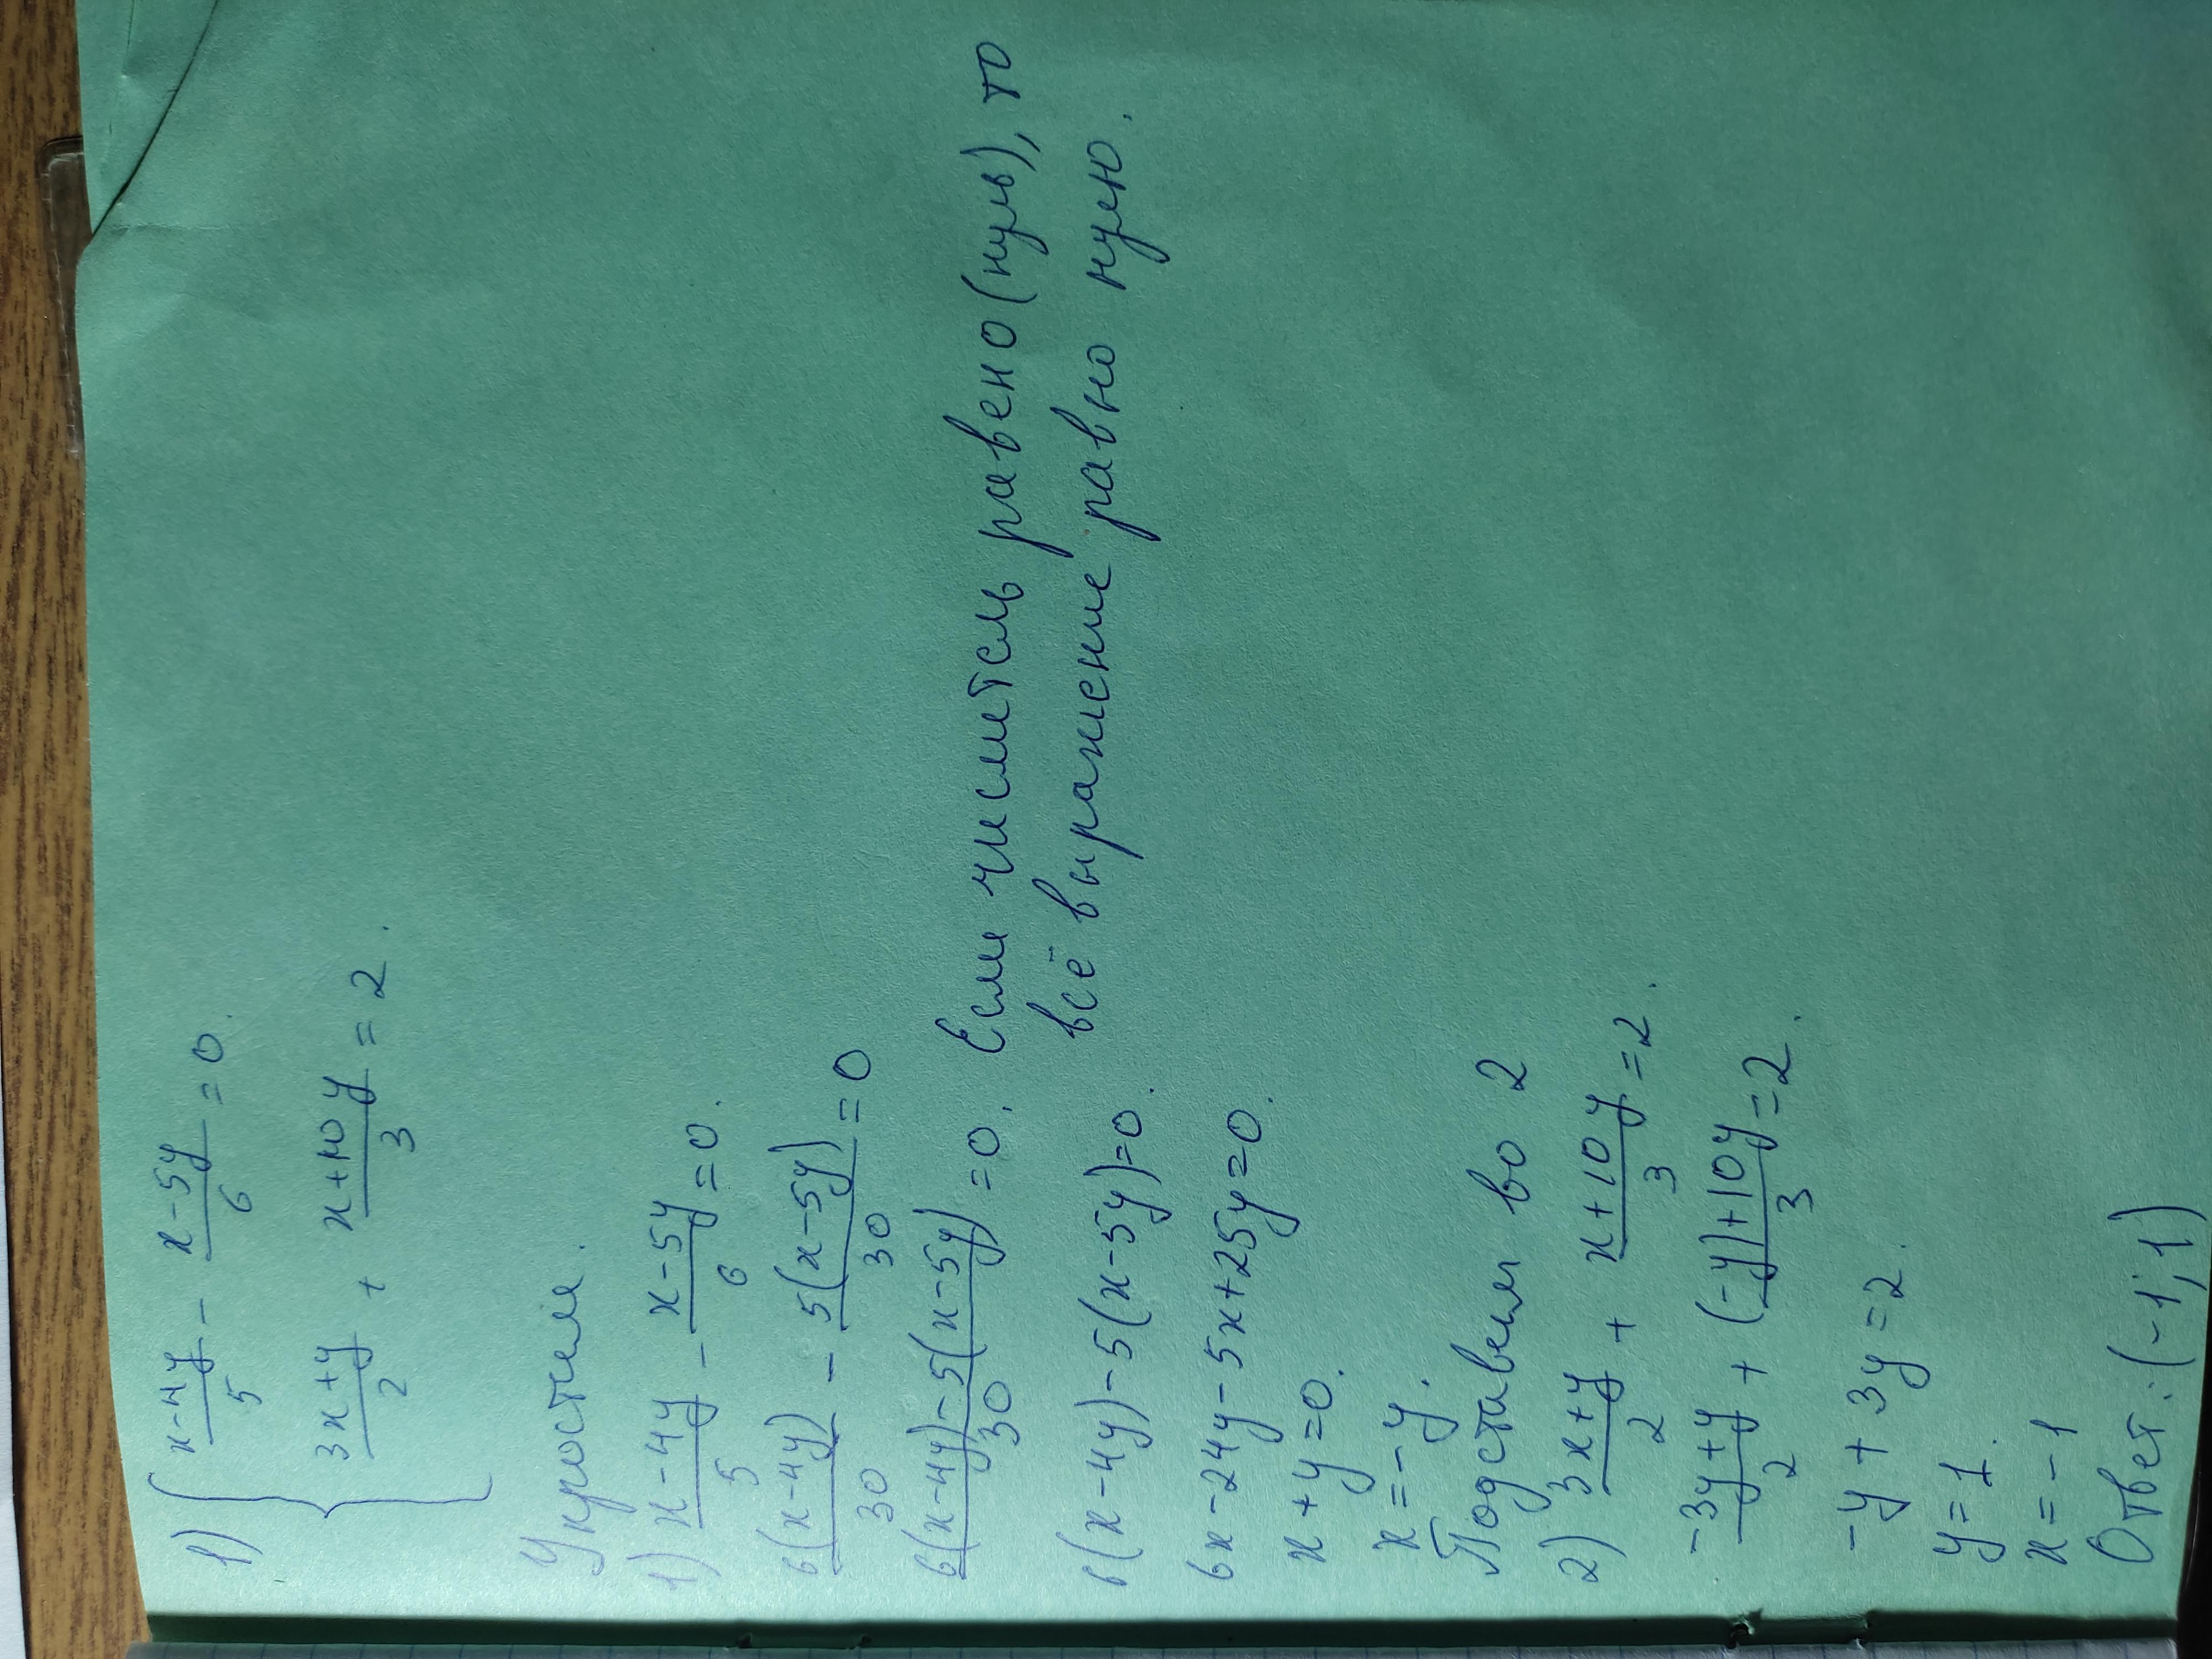 1) { (x-4y)/5 - (x-5y)/6 = 0.
(3x+y)/2 + (x+10y)/3 = 2.
Упростим.
1) (x-4y)/5 - (x-5y)/6 = 0.
6(x-4y)/30 - 5(x-5y)/30 = 0
(6(x-4y)-5(x-5y))/30 = 0. Если числитель равено (нуль), то
всё выражение равно нулю.
6(x-4y)-5(x-5y)=0.
6x-24y-5x+25y=0.
x+y=0.
x=-y.
Подставим во 2
2) (3x+y)/2 + (x+10y)/3 = 2.
(-3y+y)/2 + ((-y)+10y)/3 = 2.
-y+3y=2.
y=1.
x=-1
Ответ: (-1; 1)